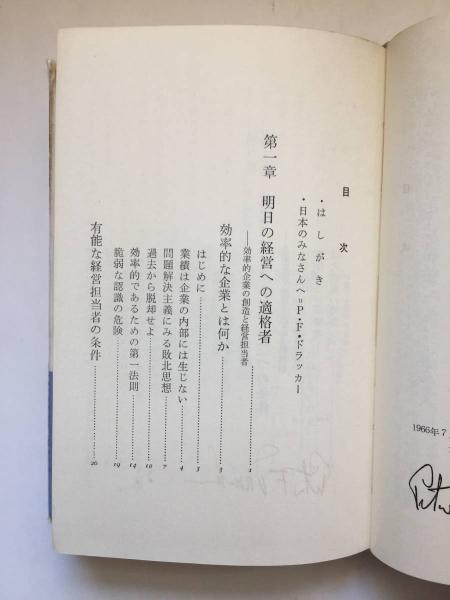 目次
・はしがき
・日本のみなさんへ=P・F・ドラッカー
第一章 明日の経営への適格者
――効率的企業の創造と経営担当者…………1
効率的な企業とは何か…………3
はじめに…………3
業績は企業の内部には生じない…………4
問題解決主義にみる敗北思想…………7
過去から脱却せよ…………10
効率的であるための第一法則…………14
脆弱な認識の危険…………19
有能な経営担当者の条件…………26
1966年7